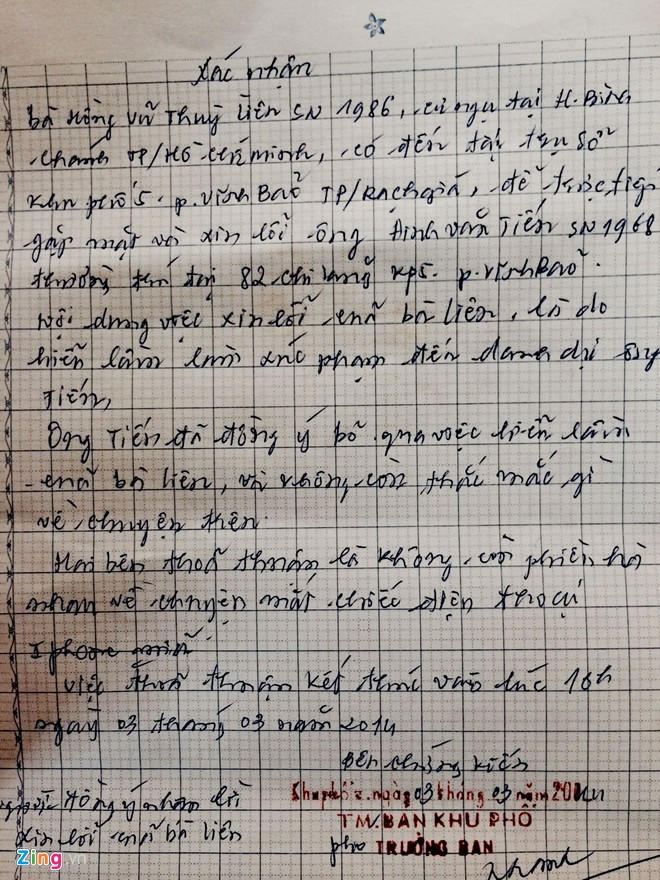 Xác nhận
bà Hồng Vũ Thuỳ Liên SN 1986, cư ngụ tại H. Bình
chánh TP/Hồ chí minh, có đến tại trụ sở
khu phố 5. p. vĩnh Bảo TP/Rạch giá, để trực tiếp
gặp mặt và xin lỗi ông Đinh văn Tiến SN 1968
thường trú tại 82 chi lăng kp5. p. vĩnh Bảo.
Nội dung việc xin lỗi của bà liên, là do
hiểu lầm làm xúc phạm đến danh dự ông
Tiến,
Ông Tiến đã đồng ý bỏ qua việc hiểu lầm
của bà liên, và không còn thắc mắc gì
về chuyện trên.
Hai bên thoả thuận là không còn phiền hà
nhau về chuyện mất chiếc điện thoại
Iphone
việc thoả thuận kết thúc vào lúc 16h
ngày 03 tháng 03 năm 2014
Bên chứng kiến
Khu phố 5. ngày 03 tháng 03 năm 2014
TM. BAN KHU PHỐ
phó TRƯỞNG BAN
đồng ý nhận lời
xin lỗi của bà liên
Zing.vn